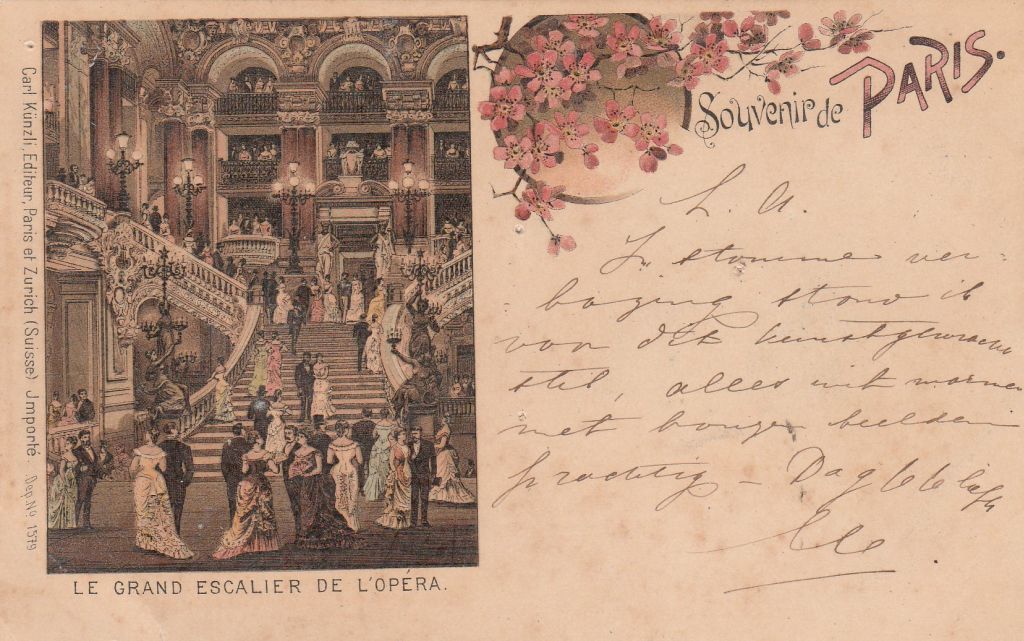 Carl Künzli, Editeur, Paris et Zurich (Suisse) Importé. Dep. No 1579
Souvenir de PARIS.
LE GRAND ESCALIER DE L'OPÉRA.
L. A.
In stomme ver-
bazing stond ik
voor dit kunstgewrocht
stil, alles wit marmer
met bronzen beelden
prachtig - Dag